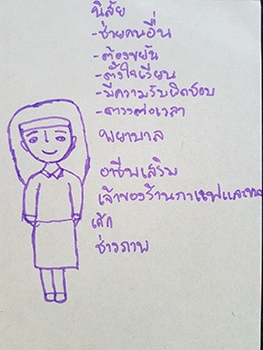 นิสัย
-ช่วยคนอื่น
-ต้องขยัน
-ตั้งใจเรียน
-มีความรับผิดชอบ
-ตรงต่อเวลา
พยาบาล
อาชีพเสริม
เจ้าของร้านกาแฟและ
เค้ก
ช่างภาพ